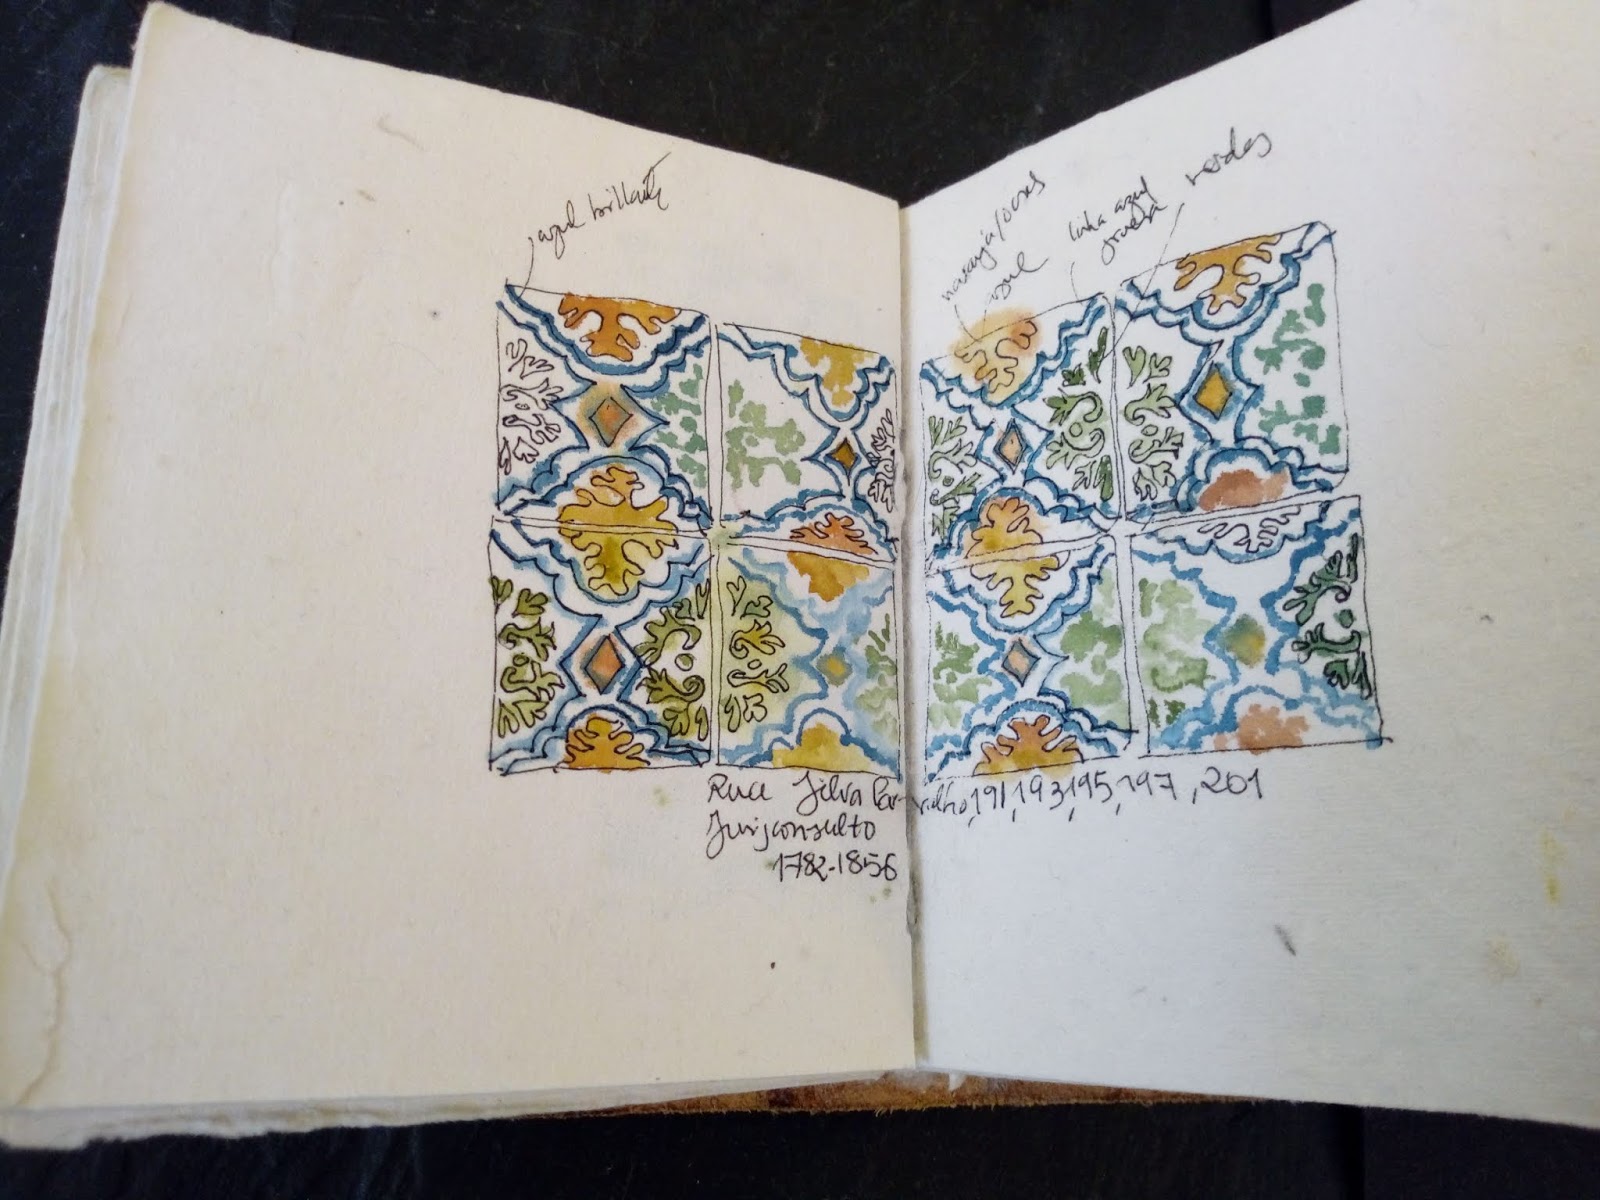 azul brillante
naranja/ocres
azul
linha azul
gruesa
verdes
Rua Silva Carvalho, 191, 193, 195, 197, 201
Jurisconsulto
1782-1856